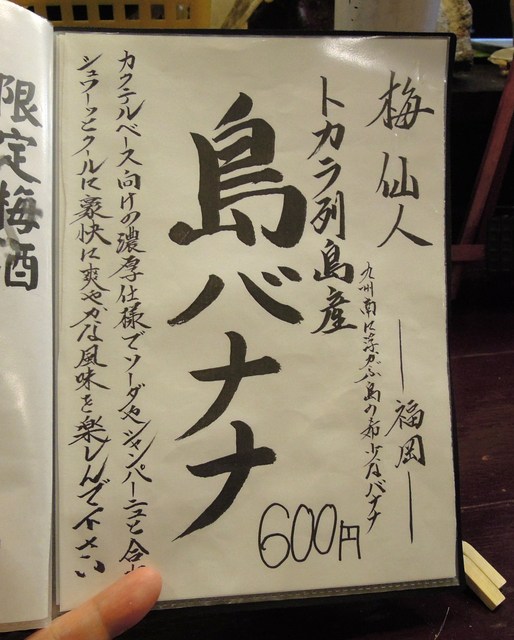 梅仙人
―福岡―
九州南に浮かぶ島の希少なバナナ
トカラ列島産
島バナナ
カクテルベース向けの濃厚仕様でソーダやシャンパーニュと合わ
シュワーッとクールに豪快に爽やかな風味を楽しんで下さい
600円
限定梅酒